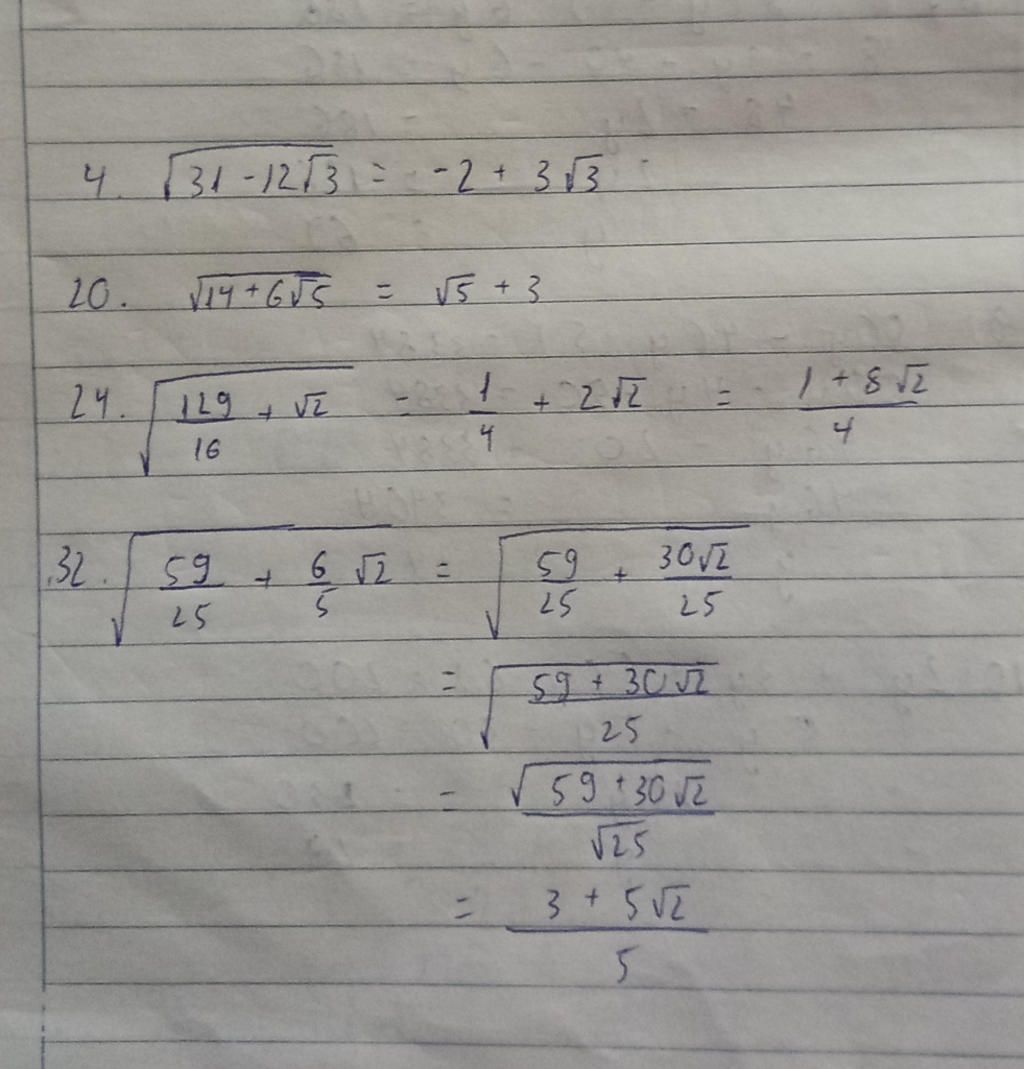 4. √(31 - 12√3) = -2 + 3√3
20. √(14 + 6√5) = √5 + 3
24. √(129/16 + √2) = 1/4 + 2√2 = (1 + 8√2)/4
32. √(59/25 + 6/5 √2) = √(59/25 + 30√2/25)
= √((59 + 30√2)/25)
= √(59 + 30√2)/√25
= (3 + 5√2)/5